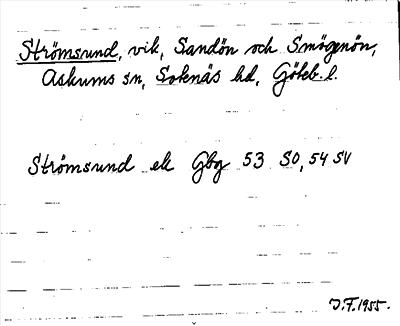 Strömsund, vik, Sandön och Smögenön,
Askums sn, Soknäs hd, Göteb. l.
Strömsund ek Gbg 53 SO, 54 SV
J.F. 1955.